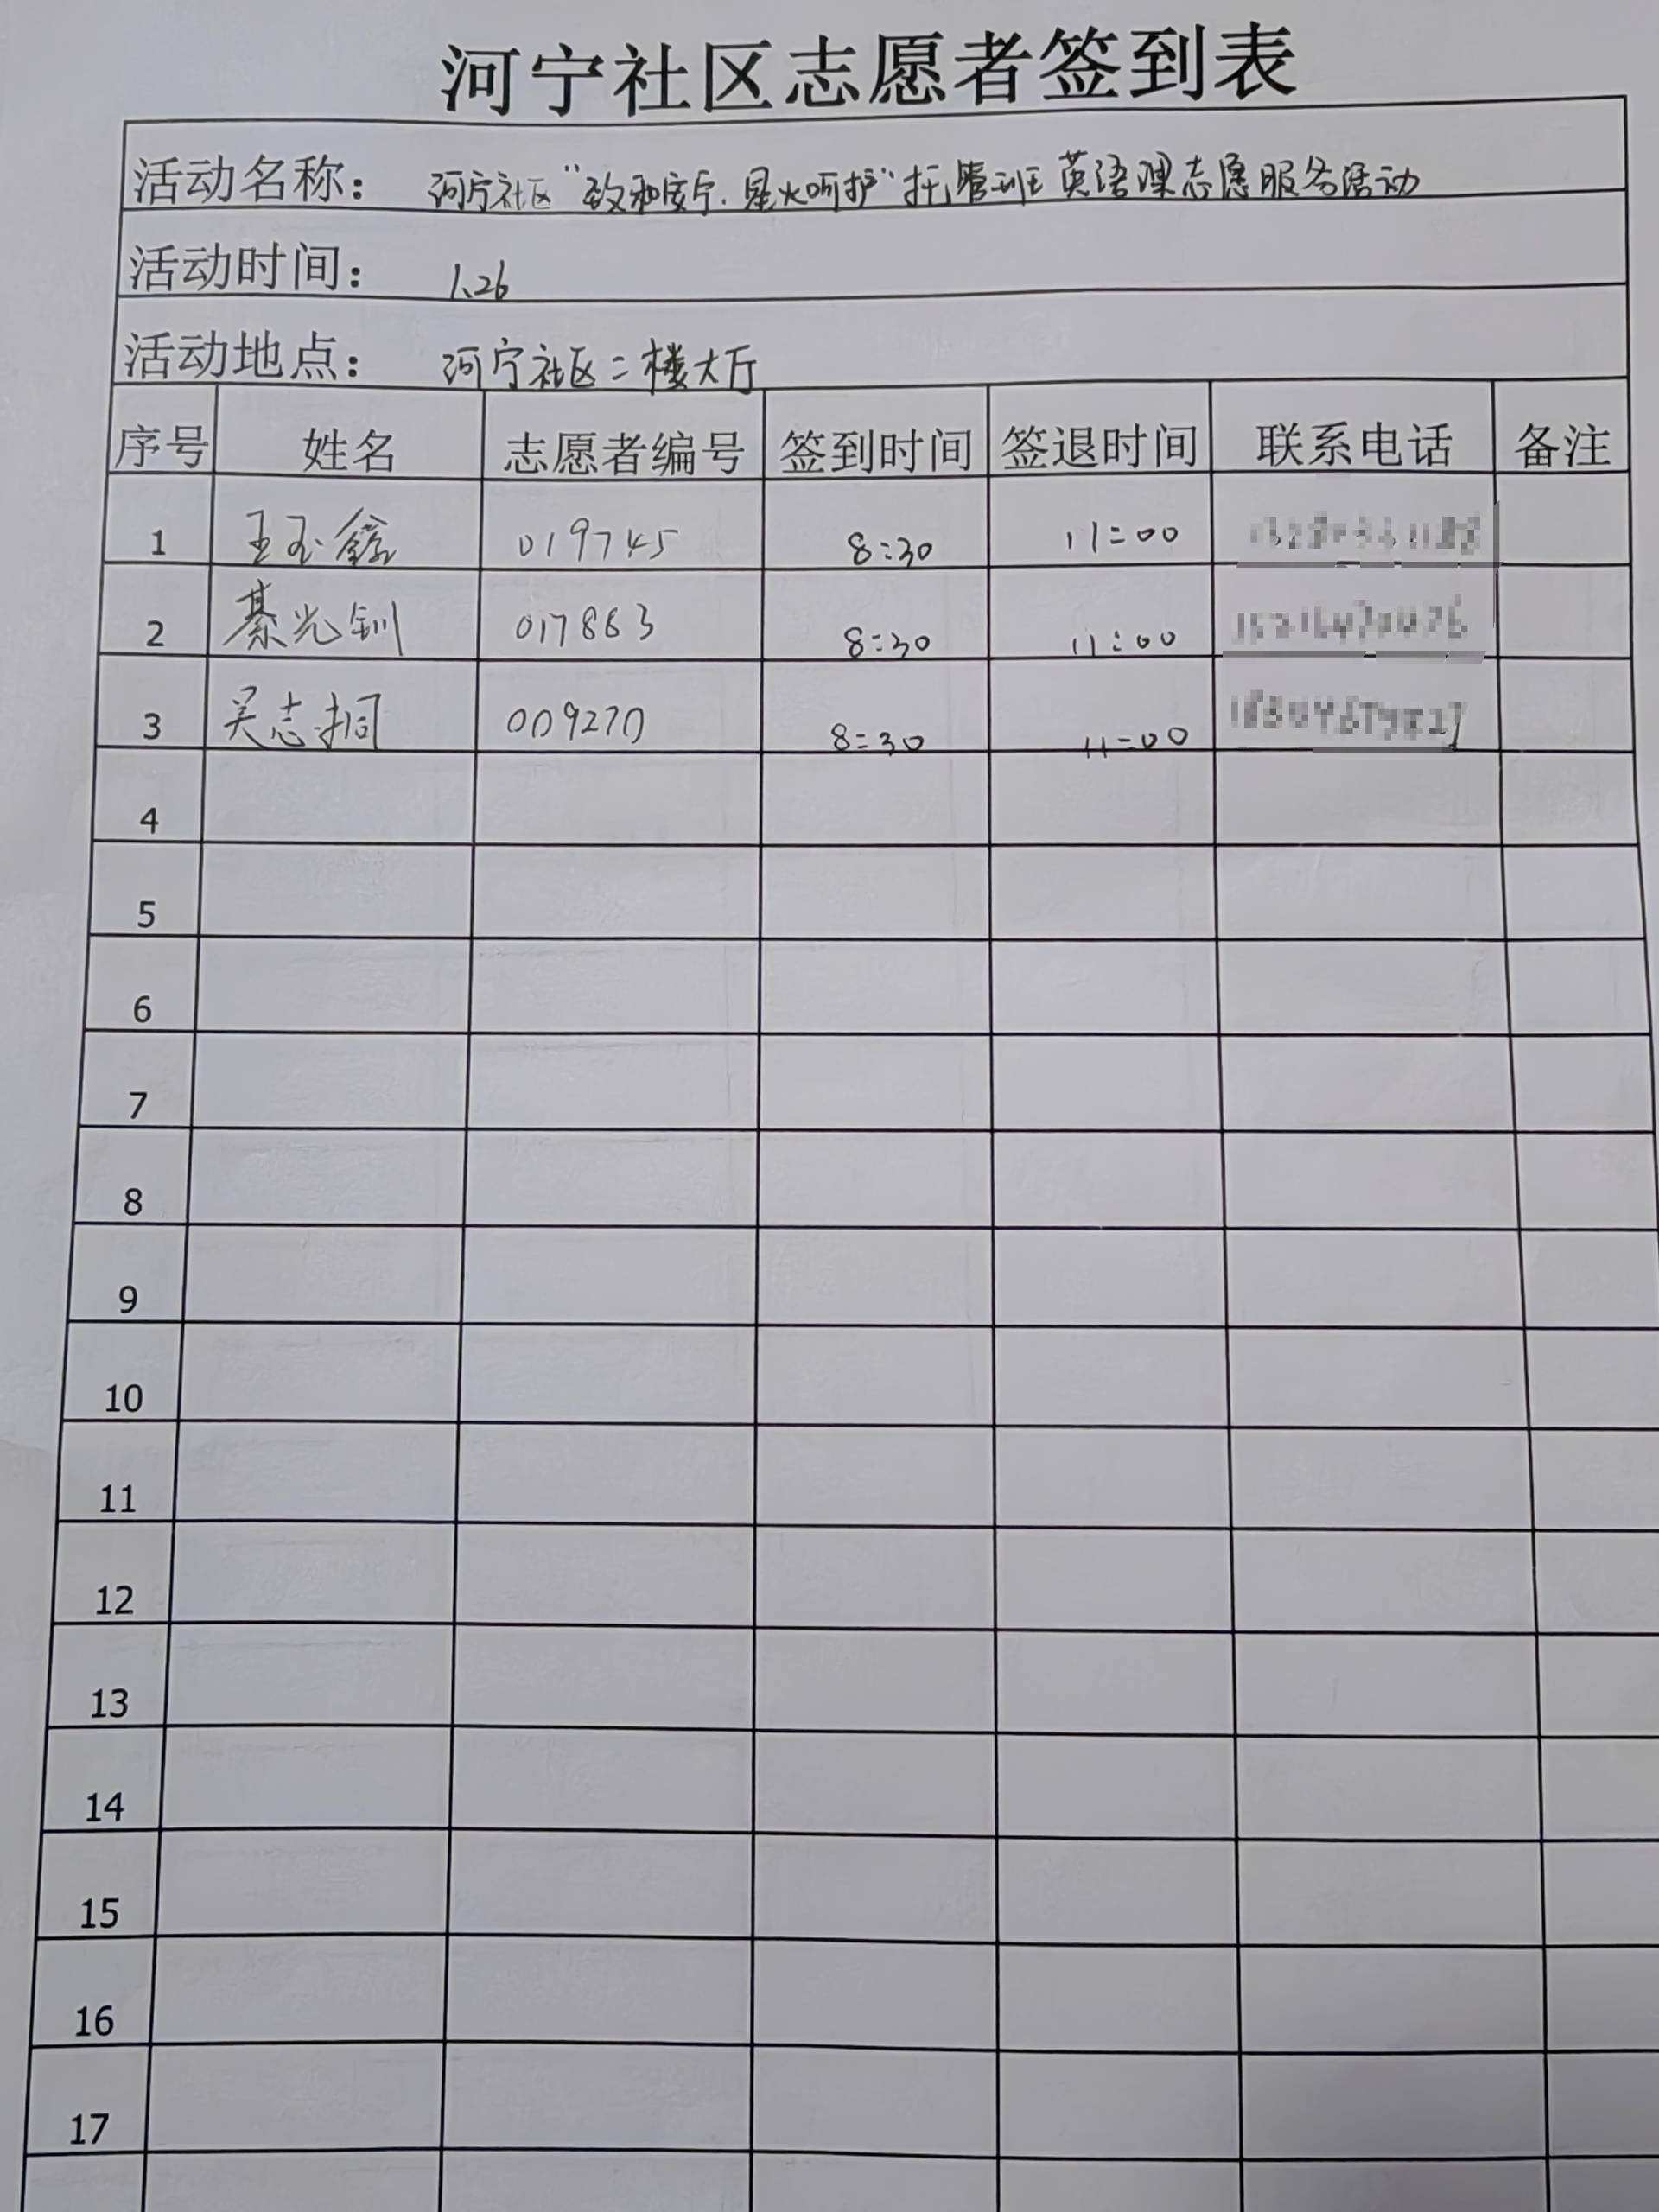 河宁社区志愿者签到表
活动名称： 河宁社区“致和安宁.星火呵护”托管班英语课志愿服务活动
活动时间： 1.26
活动地点： 河宁社区二楼大厅
序号 姓名 志愿者编号 签到时间 签退时间 联系电话 备注
1 王玉鑫 019745 8:30 11:00
2 綦光钏 017883 8:30 11:00
3 吴志桐 009270 8:30 11:00
4
5
6
7
8
9
10
11
12
13
14
15
16
17